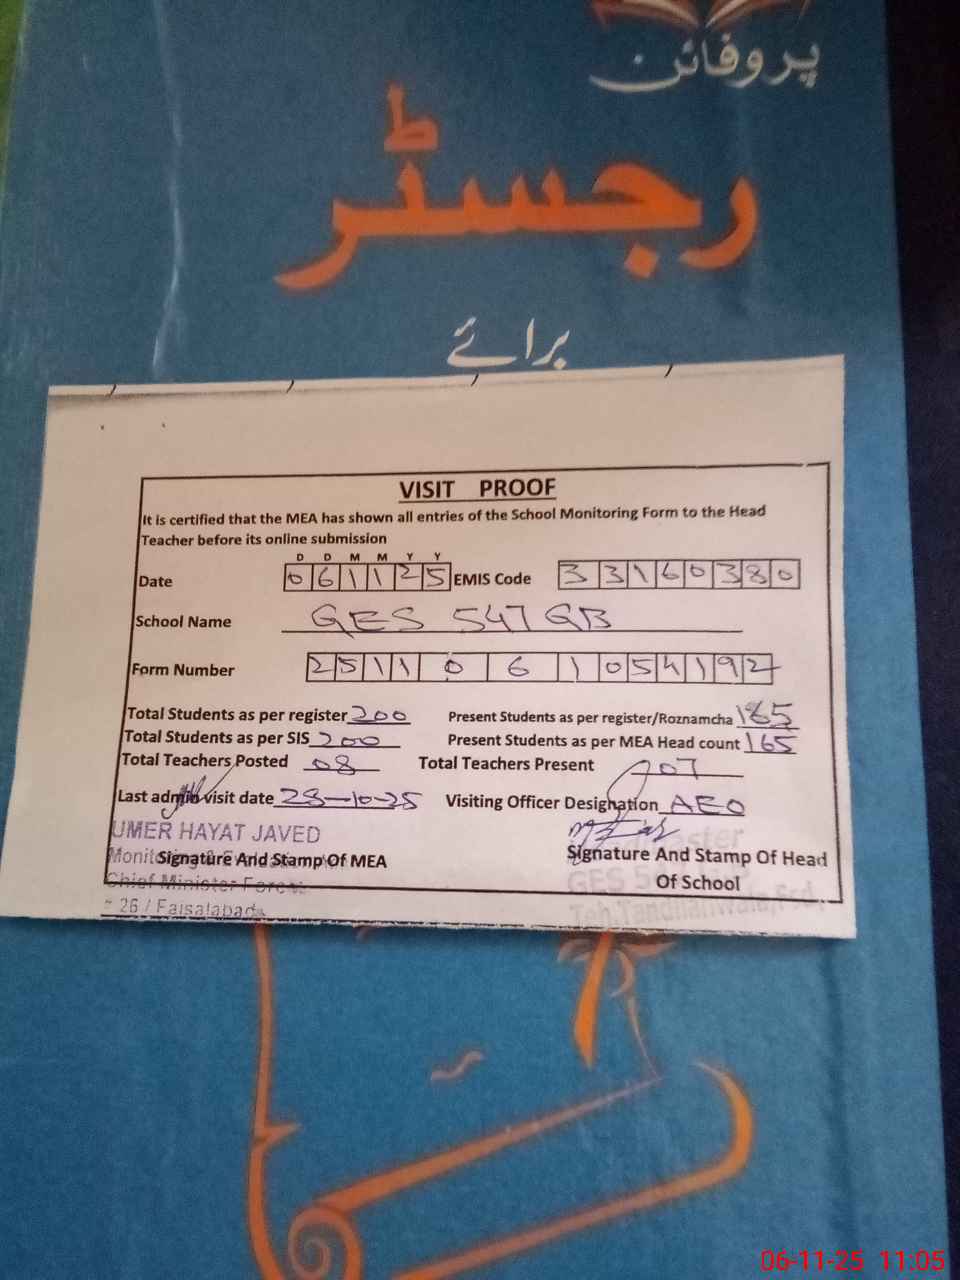 پروفائن
رجسٹر
برائے
VISIT PROOF
It is certified that the MEA has shown all entries of the School Monitoring Form to the Head
Teacher before its online submission
D D M M Y Y
Date 0 6 1 1 2 5 EMIS Code 3 3 1 6 0 3 8 0
School Name GES 547 GB
Form Number 2 5 1 1 0 6 1 0 5 4 1 9 2
Total Students as per register 200 Present Students as per register/Roznamcha 165
Total Students as per SIS 200 Present Students as per MEA Head count 165
Total Teachers Posted 08 Total Teachers Present 07
Last admin visit date 28-10-25 Visiting Officer Designation AEO
UMER HAYAT JAVED
Signature And Stamp Of MEA Signature And Stamp Of Head
Of School
Chief Minister
26 / Faisalabad
GES
Teh,Tandlianwala,Fsd,
06-11-25 11:05